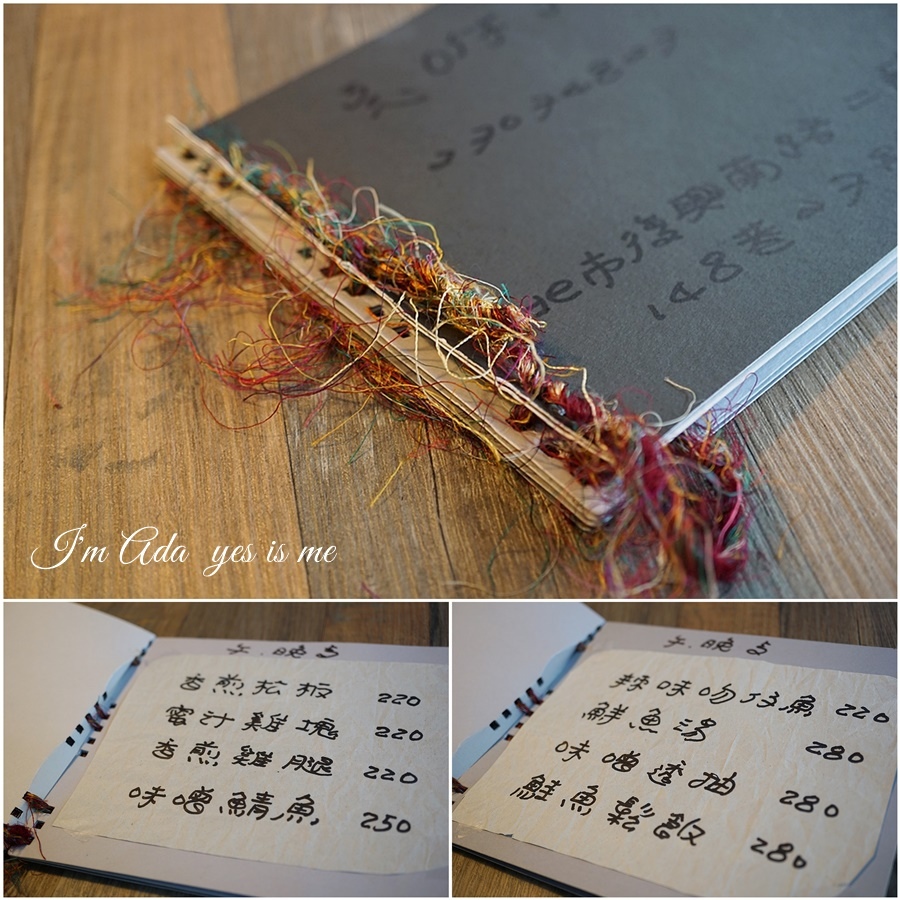 市復興南路一
148巷27
I'm Ada yes is me
午.晚
香煎松板 220
蜜汁雞塊 220
香煎雞腿 220
味噌鯖魚 250
午.晚
辣味吻仔魚 220
鮮魚湯 280
味噌透抽 280
鮭魚鬆飯 280